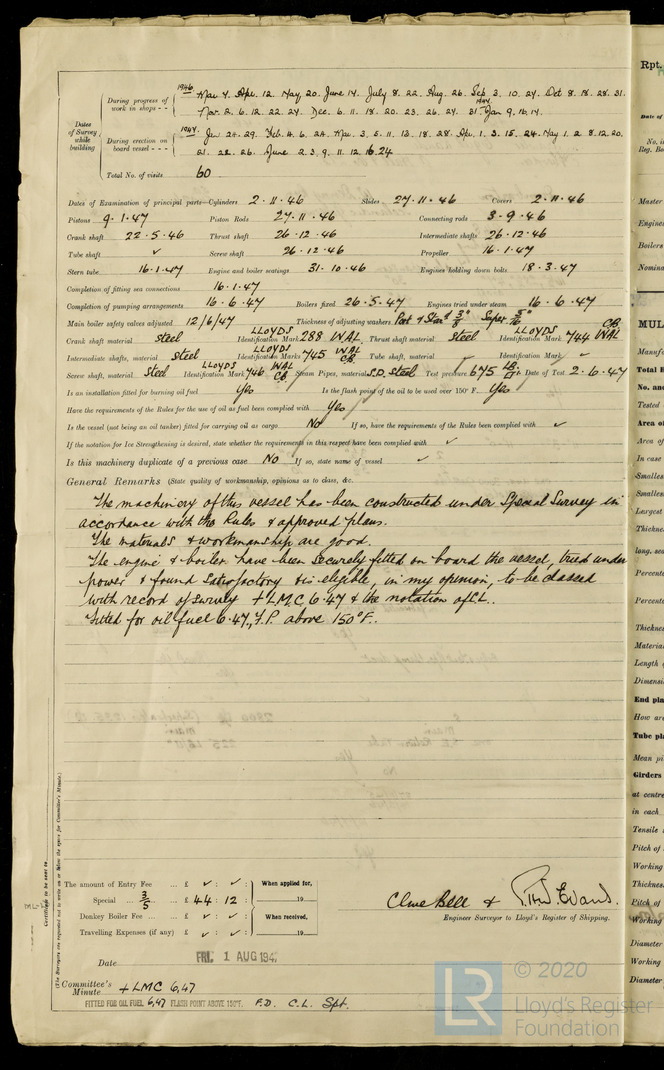 1946
During progress of work in shops - -
Mar 4. Apr. 12. May, 20. June 14. July 8. 22. Aug. 26. Sep 3. 10. 24. Oct 8. 18. 28. 31.
Nov. 2. 6. 12. 22. 27. Dec. 6. 11. 18. 20. 23. 26. 27. 31. 1947 Jan 9. 16. 14.
Dates of Survey while building
During erection on board vessel - - -
1947 Jan 24. 29. Feb. 4. 6. 24. Mar. 3. 5. 11. 13. 18. 28. Apr. 1. 3. 15. 24. May 1. 2. 8. 12. 20.
21. 22. 26. June 2. 3. 9. 11. 12. 16. 24
Total No. of visits 60
Dates of Examination of principal parts—Cylinders 2·11·46 Slides 27·11·46 Covers 2·11·46
Pistons 9·1·47 Piston Rods 27·11·46 Connecting rods 3·9·46
Crank shaft 22·5·46 Thrust shaft 26·12·46 Intermediate shafts 26·12·46
Tube shaft ✓ Screw shaft 26·12·46 Propeller 16·1·47
Stern tube 16·1·47 Engine and boiler seatings 31·10·46 Engines holding down bolts 18·3·47
Completion of fitting sea connections 16·1·47
Completion of pumping arrangements 16·6·47 Boilers fixed 26·5·47 Engines tried under steam 16·6·47
Main boiler safety valves adjusted 12/6/47 Thickness of adjusting washers Port & Star'd 3/8" Super 5/16"
Crank shaft material Steel Identification Mark LLOYDS 288 WAL Thrust shaft material Steel Identification Mark LLOYDS 744 WAL CB
Intermediate shafts, material Steel Identification Marks LLOYDS 745 WAL CB Tube shaft, material Identification Mark ✓
Screw shaft, material Steel Identification Mark LLOYDS 746 WAL CB. Steam Pipes, material S.D. Steel Test pressure 675 LB Date of Test 2·6·47
Is an installation fitted for burning oil fuel Yes Is the flash point of the oil to be used over 150° F. Yes
Have the requirements of the Rules for the use of oil as fuel been complied with Yes
Is the vessel (not being an oil tanker) fitted for carrying oil as cargo No If so, have the requirements of the Rules been complied with ✓
If the notation for Ice Strengthening is desired, state whether the requirements in this respect have been complied with ✓
Is this machinery duplicate of a previous case No If so, state name of vessel ✓
General Remarks (State quality of workmanship, opinions as to class, &c.
The machinery of this vessel has been constructed under Special Survey in
accordance with the Rules & approved plans.
The materials & workmanship are good.
The engine & boiler have been securely fitted on board the vessel, tried under
power & found satisfactory & is eligible, in my opinion, to be classed
with record of survey +LMC 6·47 & the notation of CL.
Fitted for oil fuel 6·47, F.P. above 150°F.
The amount of Entry Fee ... £ ✓ : ✓ : When applied for,
Special ... 3/5 £ 44 : 12 : 19
Donkey Boiler Fee ... £ ✓ : ✓ : When received,
Travelling Expenses (if any) £ ✓ : ✓ : 19
Clive Bell &
Engineer Surveyor to Lloyd's Register of Shipping.
Date FRI. 1 AUG 194
Committee's Minute +LMC 6,47
FITTED FOR OIL FUEL 6,47 FLASH POINT ABOVE 150°F. F.D. C.L. Spt.
Certificate to be sent to
(The Surveyors are requested not to write on or below the space for Committee's Minute.)
Rpt.
Date of
No. i
Reg. Bo
Master
Engines
Boilers
Nomina
MUL
Manufa
Total H
No. and
Tested
Area of
Area of
In case
Smalles
Smalles
Largest
Thickne
long. sea
Percenta
Percenta
Thickne
Materia
Length o
Dimensi
End pla
How are
Tube pla
Mean pi
Girders
at centre
in each
Tensile
Pitch of
Working
Thickne
Pitch of
Working
Diameter
Working
Diameter
LR
© 2020
Lloyd's Register
Foundation